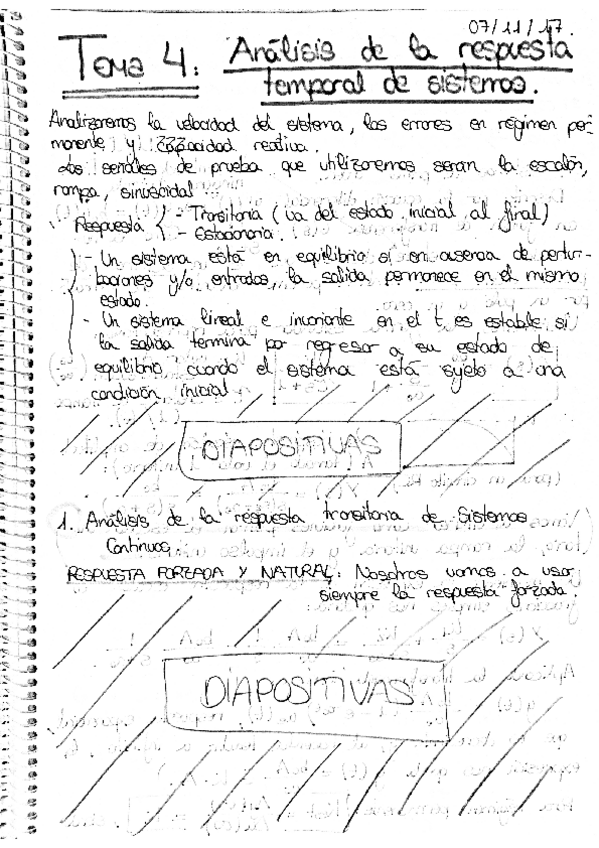 07/11/17.
Tema 4: Análisis de la respuesta
temporal de sistemas.
Analizaremos la velocidad del sistema, los errores en régimen per-
manente y capacidad reativa.
Las señales de prueba que utilizaremos seran la escalón,
rampa, sinusoidal
Respuesta { - Transitoria (va del estado inicial al final)
- Estacionaria.
- Un sistema está en equilibrio si en ausencia de pertur-
baciones y/o entradas, la salida permanece en el mismo
estado.
- Un sistema lineal e invariante en el t, es estable si
la salida termina por regresar a su estado de
equilibrio cuando el sistema está sujeto a una
condición inicial
DIAPOSITIVAS
1. Análisis de la respuesta transitoria de Sistemas
Continuos
RESPUESTA FORZADA Y NATURAL: Nosotros vamos a usar
siempre la respuesta forzada.
DIAPOSITIVAS